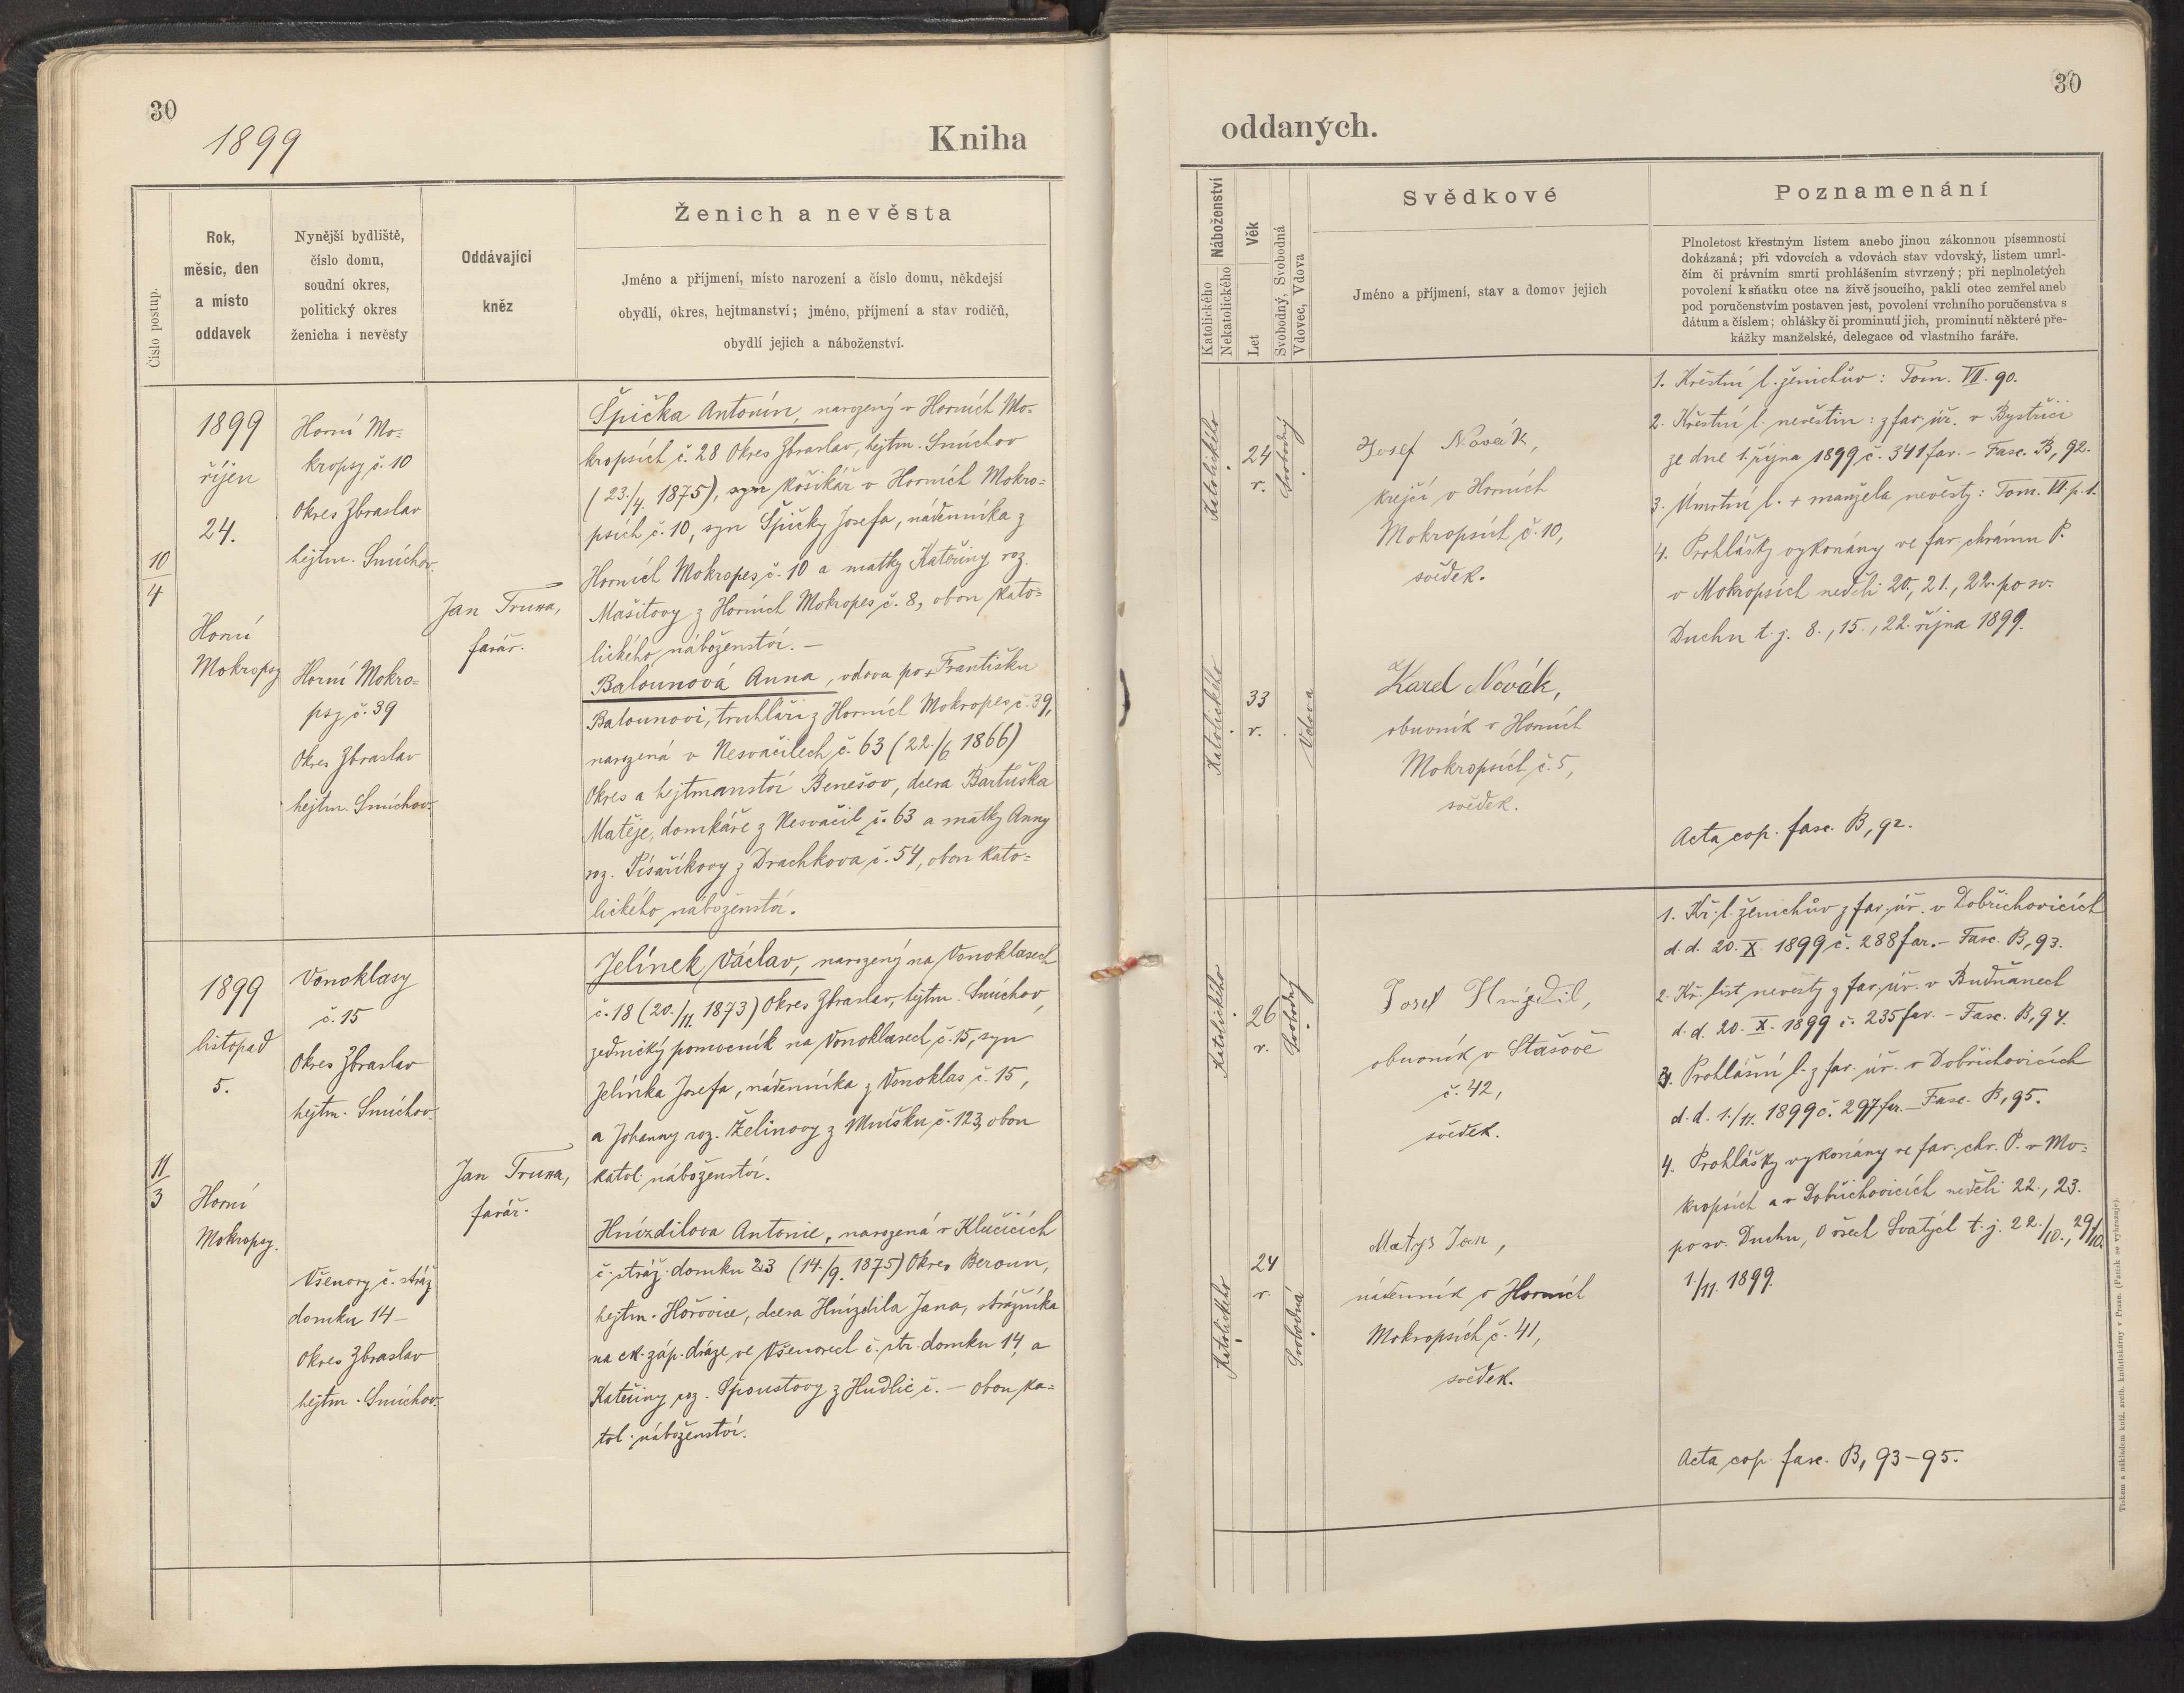 30
1899
Kniha
Číslo postup.
Rok,
měsíc, den
a místo
oddavek
Nynější bydliště,
číslo domu,
soudní okres,
politický okres
ženicha i nevěsty
Oddávající
kněz
Ženich a nevěsta
Jméno a příjmení, místo narození a číslo domu, někdejší
obydlí, okres, hejtmanství; jméno, příjmení a stav rodičů,
obydlí jejich a náboženství.
10
4
1899
říjen
24.
Horní
Mokropsy
Horní Mo-
kropsy č. 10
Okres Zbraslav
hejtm. Smíchov.
Horní Mokro-
psy č. 39
Okres Zbraslav
hejtm. Smíchov.
Jan Truxa,
farář.
Špička Antonín, narozený v Horních Mo-
kropsích č. 28 Okres Zbraslav, hejtm. Smíchov
(23./4. 1875), syn košíkář v Horních Mokro-
psích č. 10, syn Špičky Josefa, nádenníka z
Horních Mokropes č. 10 a matky Kateřiny roz.
Mašitovy z Horních Mokropes č. 8, obou kato-
lického náboženství. –
Balounová Anna, vdova po + Františku
Balounovi, truhláři z Horních Mokropes č. 39,
narozená v Nesvačilech č. 63 (22./6. 1866)
Okres a hejtmanství Benešov, dcera Bartůška
Matěje, domkáře z Nesvačil č. 63 a matky Anny
roz. Písaříkovy z Drachkova č. 54, obou kato-
lického náboženství.
11
3
1899
listopad
5.
Horní
Mokropsy.
Vonoklasy
č. 15
Okres Zbraslav
hejtm. Smíchov.
Všenory č. stráž.
domku 14 –
Okres Zbraslav
hejtm. Smíchov.
Jan Truxa,
farář.
Jelínek Václav, narozený na Vonoklasech
č. 18 (20./11. 1873) Okres Zbraslav, hejtm. Smíchov,
zednický pomocník na Vonoklasech č. 15, syn
Jelínka Josefa, nádenníka z Vonoklas č. 15,
a Johanny roz. Želinovy z Mníšku č. 123, obou
katol. náboženství.
Hnízdilova Antonie, narozená v Klučicích
č. stráž. domku 23 (14./9. 1875) Okres Beroun,
hejtm. Hořovice, dcera Hnízdila Jana, strážníka
na ck. záp. dráze ve Všenorech č. str. domku 14, a
Kateřiny roz. Spoustovy z Hudlic č. – obou ka-
tol. náboženství.
30
oddaných.
Náboženství
Katolického
Nekatolického
Věk
Let
Svobodný, Svobodná
Vdovec, Vdova
Svědkové
Jméno a příjmení, stav a domov jejich
Poznamenání
Plnoletost křestným listem anebo jinou zákonnou písemností
dokázaná; při vdovcích a vdovách stav vdovský, listem umrl-
čím či právním smrti prohlášením stvrzený; při neplnoletých
povolení k sňatku otce na živě jsoucího, pakli otec zemřel aneb
pod poručenstvím postaven jest, povolení vrchního poručenstva s
dátum a číslem; ohlášky či prominutí jich, prominutí některé pře-
kážky manželské, delegace od vlastního faráře.
Katolického
24
r.
Svobodný
Josef Novák,
krejčí v Horních
Mokropsích č. 10,
svědek.
Katolického
33
r.
Vdova
Karel Novák,
obuvník v Horních
Mokropsích č. 5,
svědek.
1. Křestní l. ženichův: Tom. VII. 90.
2. Křestní l. nevěstin: z far. úř. v Bystřici
ze dne 1. října 1899 č. 341 far. – Fasc. B, 92.
3. Úmrtní l. + manžela nevěsty: Tom. VI. p. 1.
4. Prohlášky vykonány ve far. chrámu P.
v Mokropsích neděli 20., 21., 22. po sv.
Duchu t. j. 8., 15., 22. října 1899.
Acta cop. fasc. B, 92.
Katolického
26
r.
Svobodný
Josef Hnízdil,
obuvník v Stašově
č. 42,
svědek.
Katolického
24
r.
Svobodná
Matys Jan,
nádenník v Horních
Mokropsích č. 41,
svědek.
1. Kř. l. ženichův z far. úř. v Dobřichovicích
d. d. 20. X. 1899 č. 288 far. – Fasc. B, 93.
2. Kř. list nevěsty z far. úř. v Budňanech
d. d. 20. X. 1899 č. 235 far. – Fasc. B, 94.
3. Prohlášní l. z far. úř. v Dobřichovicích
d. d. 1./11. 1899 č. 297 far. – Fasc. B, 95.
4. Prohlášky vykonány ve far. chr. P. v Mo-
kropsích a v Dobřichovicích neděli 22., 23.
po sv. Duchu, O všech Svatých t. j. 22./10., 29./10.
1./11. 1899.
Acta cop. fasc. B, 93–95.
Tiskem a nákladem kníž. arcib. knihtiskárny v Praze. (Patisk se vyhrazuje).